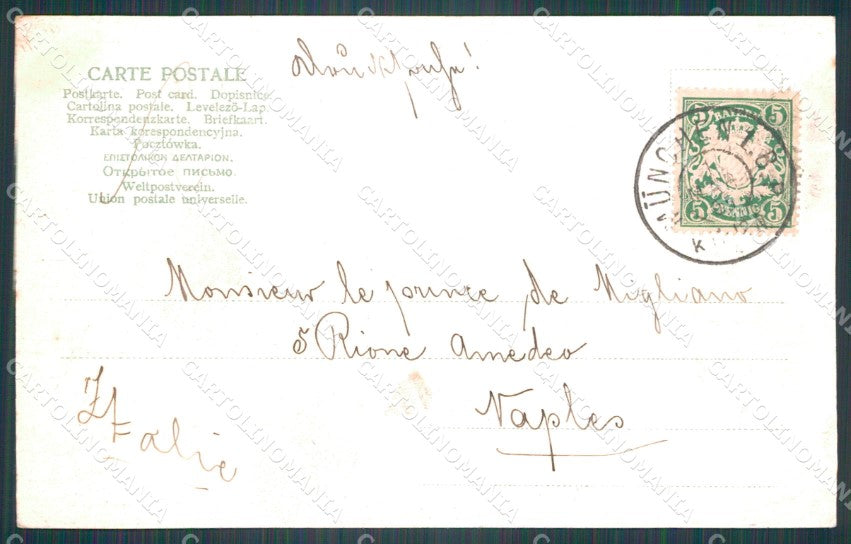 Drucksache!
CARTE POSTALE
Postkarte. Post card. Dopisnice.
Cartolina postale. Levelező-Lap.
Korrespondenzkarte. Briefkaart.
Karta korespondencyjna.
Pocztówka.
ΕΠΙΣΤΟΛΙΚΟΝ ΔΕΛΤΑΡΙΟΝ.
Открытое письмо.
Weltpostverein.
Union postale universelle.
5 5
MÜNCHEN
5 PFENNIG 5
Monsieur le prince de Migliano
5 Rione Amedeo
Naples
Italie
CARTOLINOMANIA